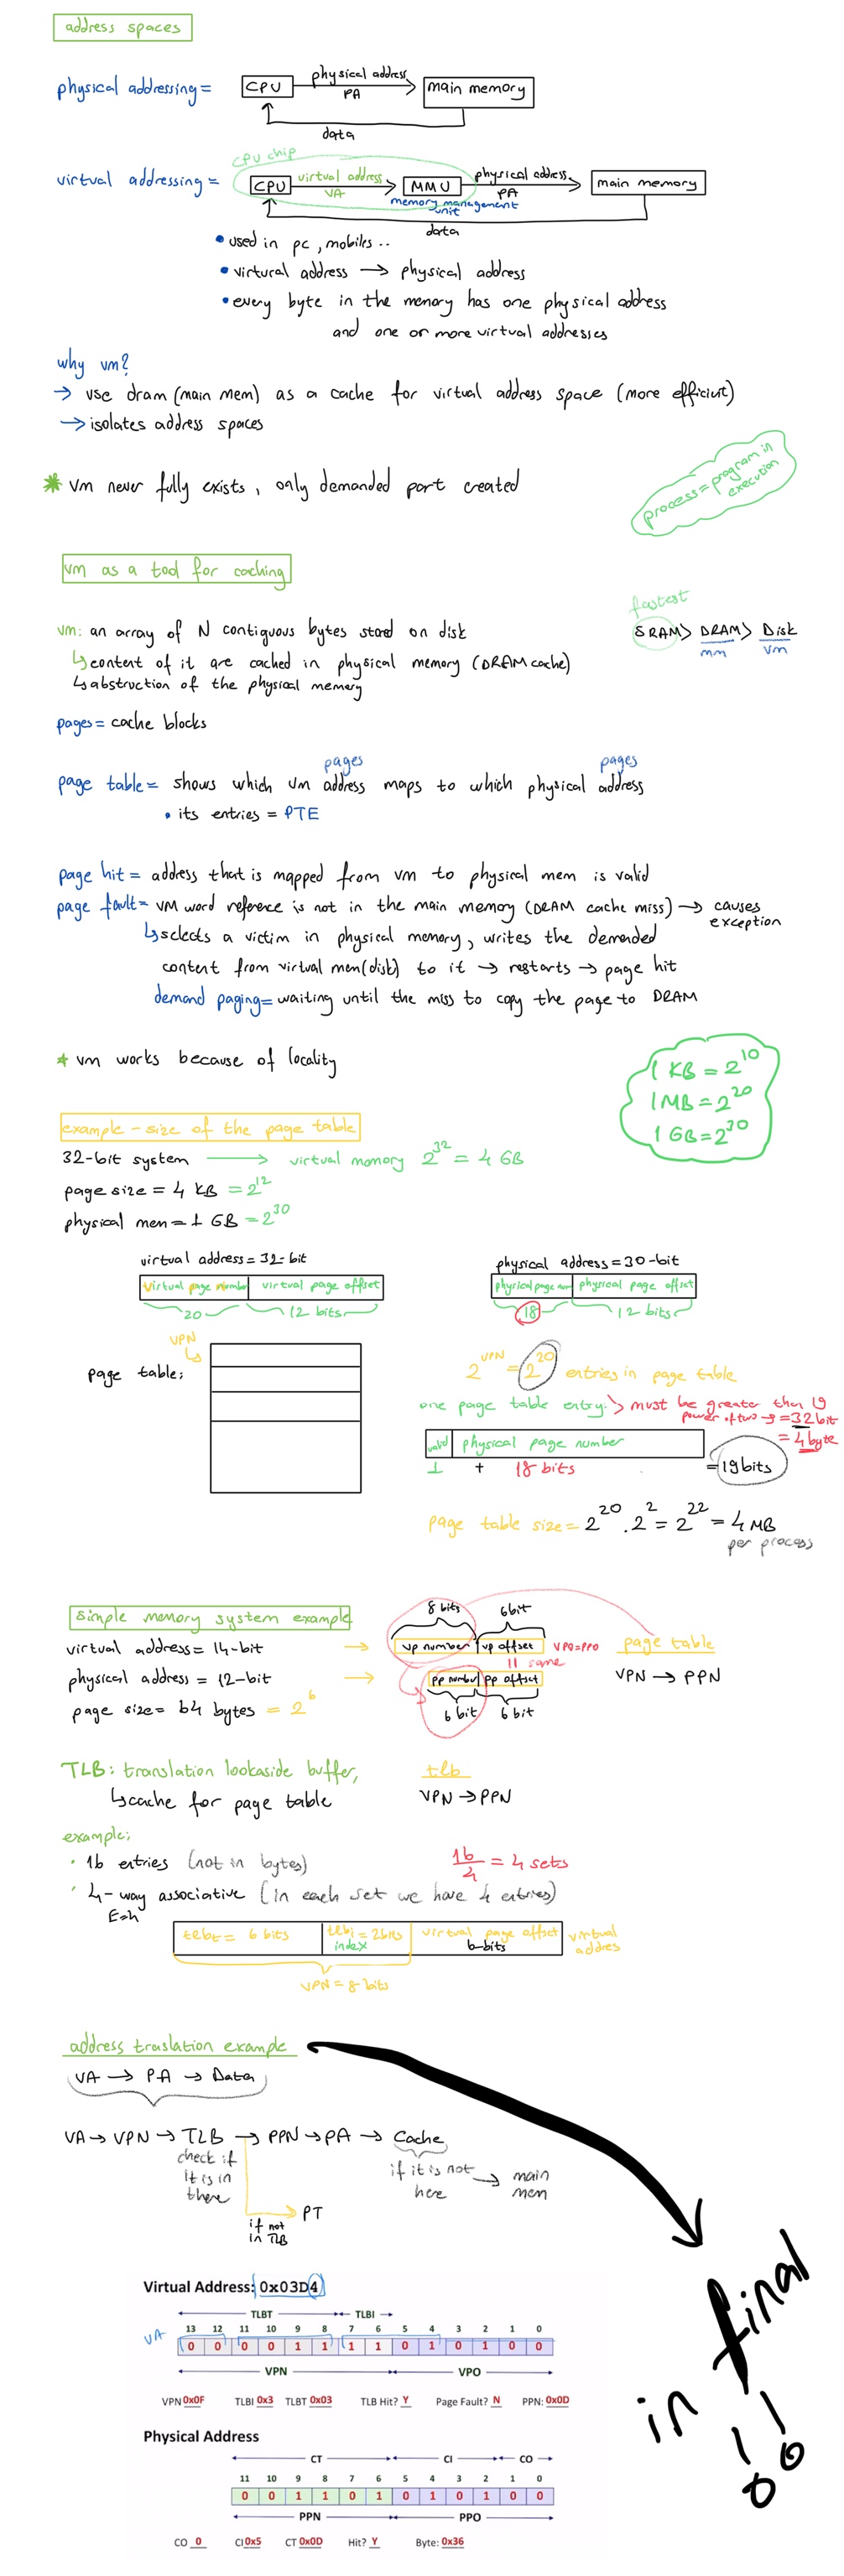 address spaces
physical addressing =
CPU
physical address
PA
main memory
data
CPU chip
virtual addressing =
CPU
virtual address
VA
MMU
memory management
unit
physical address
PA
main memory
data
• used in pc, mobiles ..
• virtural address → physical address
• every byte in the memory has one physical address
and one or more virtual addresses
why vm?
→ use dram (main mem) as a cache for virtual address space (more efficient)
→ isolates address spaces
* vm never fully exists, only demanded part created
process = program in
execution
vm as a tool for caching
fastest
SRAM > DRAM > Disk
mm vm
vm: an array of N contiguous bytes stored on disk
↳ content of it are cached in physical memory (DRAM cache)
↳ abstruction of the physical memory
pages = cache blocks
pages pages
page table = shows which vm address maps to which physical address
• its entries = PTE
page hit = address that is mapped from vm to physical mem is valid
page fault = VM word reference is not in the main memory (DRAM cache miss) → causes
exception
↳ selects a victim in physical memory, writes the demanded
content from virtual mem(disk) to it → restarts → page hit
demand paging = waiting until the miss to copy the page to DRAM
* vm works because of locality
1 KB = 2^10
1 MB = 2^20
1 GB = 2^30
example - size of the page table
32-bit system → virtual memory 2^32 = 4 GB
page size = 4 KB = 2^12
physical mem = 1 GB = 2^30
virtual address = 32-bit
virtual page number virtual page offset
20 12 bits
physical address = 30-bit
physical page num physical page offset
18 12 bits
VPN
page table:
2^VPN = 2^20 entries in page table
one page table entry. > must be greater than 19
power of two → = 32 bit
= 4 byte
valid physical page number
1 + 18 bits = 19 bits
page table size = 2^20 . 2^2 = 2^22 = 4 MB
per process
simple memory system example
8 bits 6 bit
virtual address = 14-bit →
vp number vp offset
VPO=PPO
|| same
page table
VPN → PPN
physical address = 12-bit →
pp number pp offset
6 bit 6 bit
page size = 64 bytes = 2^6
TLB: translation lookaside buffer,
↳ cache for page table
tlb
VPN → PPN
example:
• 16 entries (not in bytes)
16/4 = 4 sets
• 4-way associative (in each set we have 4 entries)
E=4
tlbt = 6 bits tlbi = 2 bits virtual page offset
index 6-bits
virtual
addres
VPN = 8 bits
address traslation example
VA → PA → Data
VA → VPN → TLB → PPN → PA → Cache
check if
it is in
there
if it is not
here
→ main
mem
PT
if not
in TLB
in final
Virtual Address: 0x03D4
TLBT TLBI
13 12 11 10 9 8 7 6 5 4 3 2 1 0
VA
0 0 0 0 1 1 1 1 0 1 0 1 0 0
VPN VPO
VPN 0x0F TLBI 0x3 TLBT 0x03 TLB Hit? Y Page Fault? N PPN: 0x0D
Physical Address
CT CI CO
11 10 9 8 7 6 5 4 3 2 1 0
0 0 1 1 0 1 0 1 0 1 0 0
PPN PPO
CO 0 CI 0x5 CT 0x0D Hit? Y Byte: 0x36